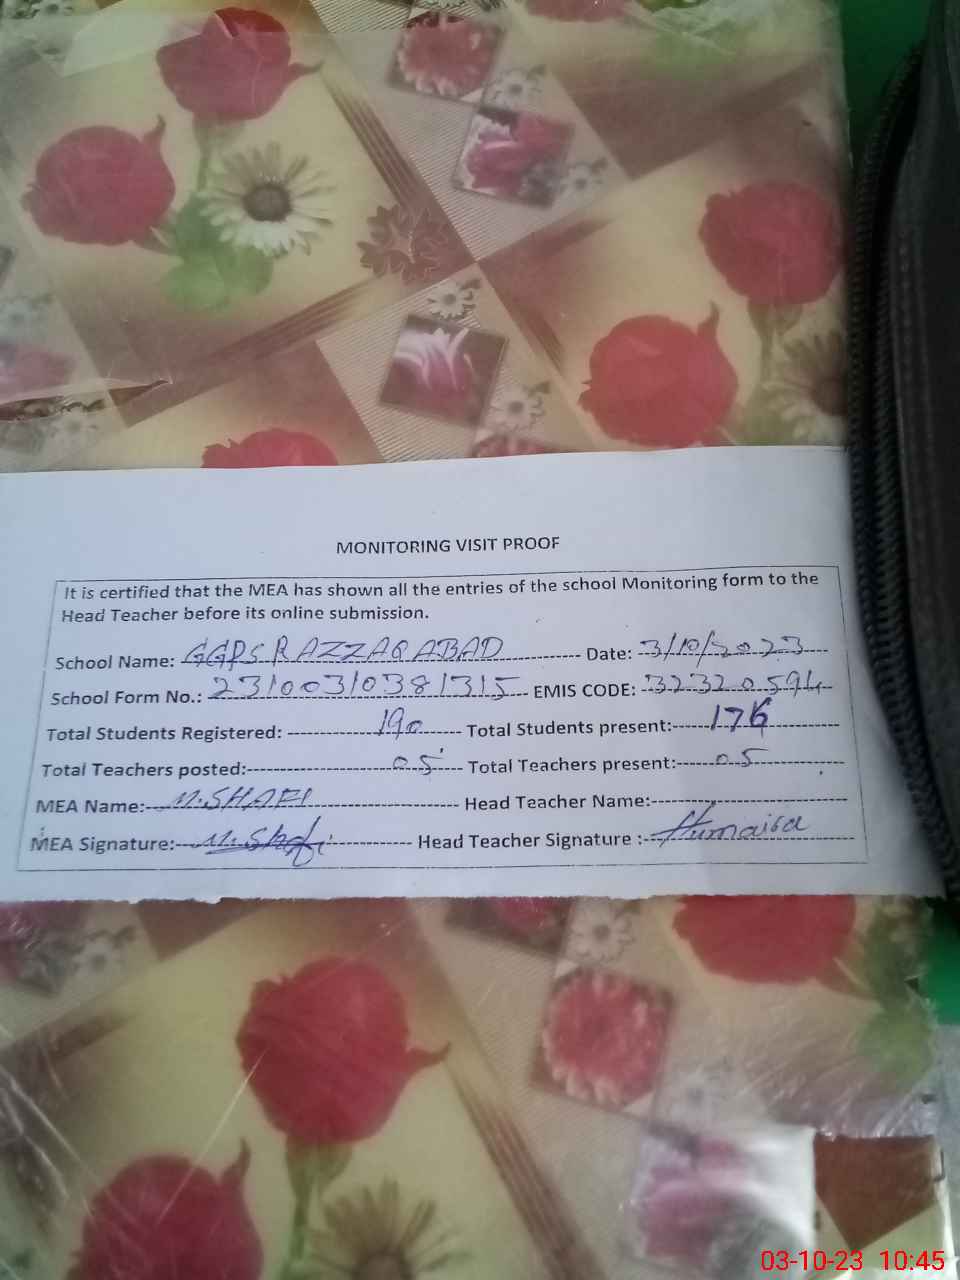 MONITORING VISIT PROOF
It is certified that the MEA has shown all the entries of the school Monitoring form to the
Head Teacher before its online submission.
School Name: GGPS RAZZAQ ABAD Date: 3/10/2023
School Form No.: 23100310381315 EMIS CODE: 32320594
Total Students Registered: 190 Total Students present: 176
Total Teachers posted: 05 Total Teachers present: 05
MEA Name: M.SHAFI Head Teacher Name:
MEA Signature: M.Shafi Head Teacher Signature : Humaira
03-10-23 10:45